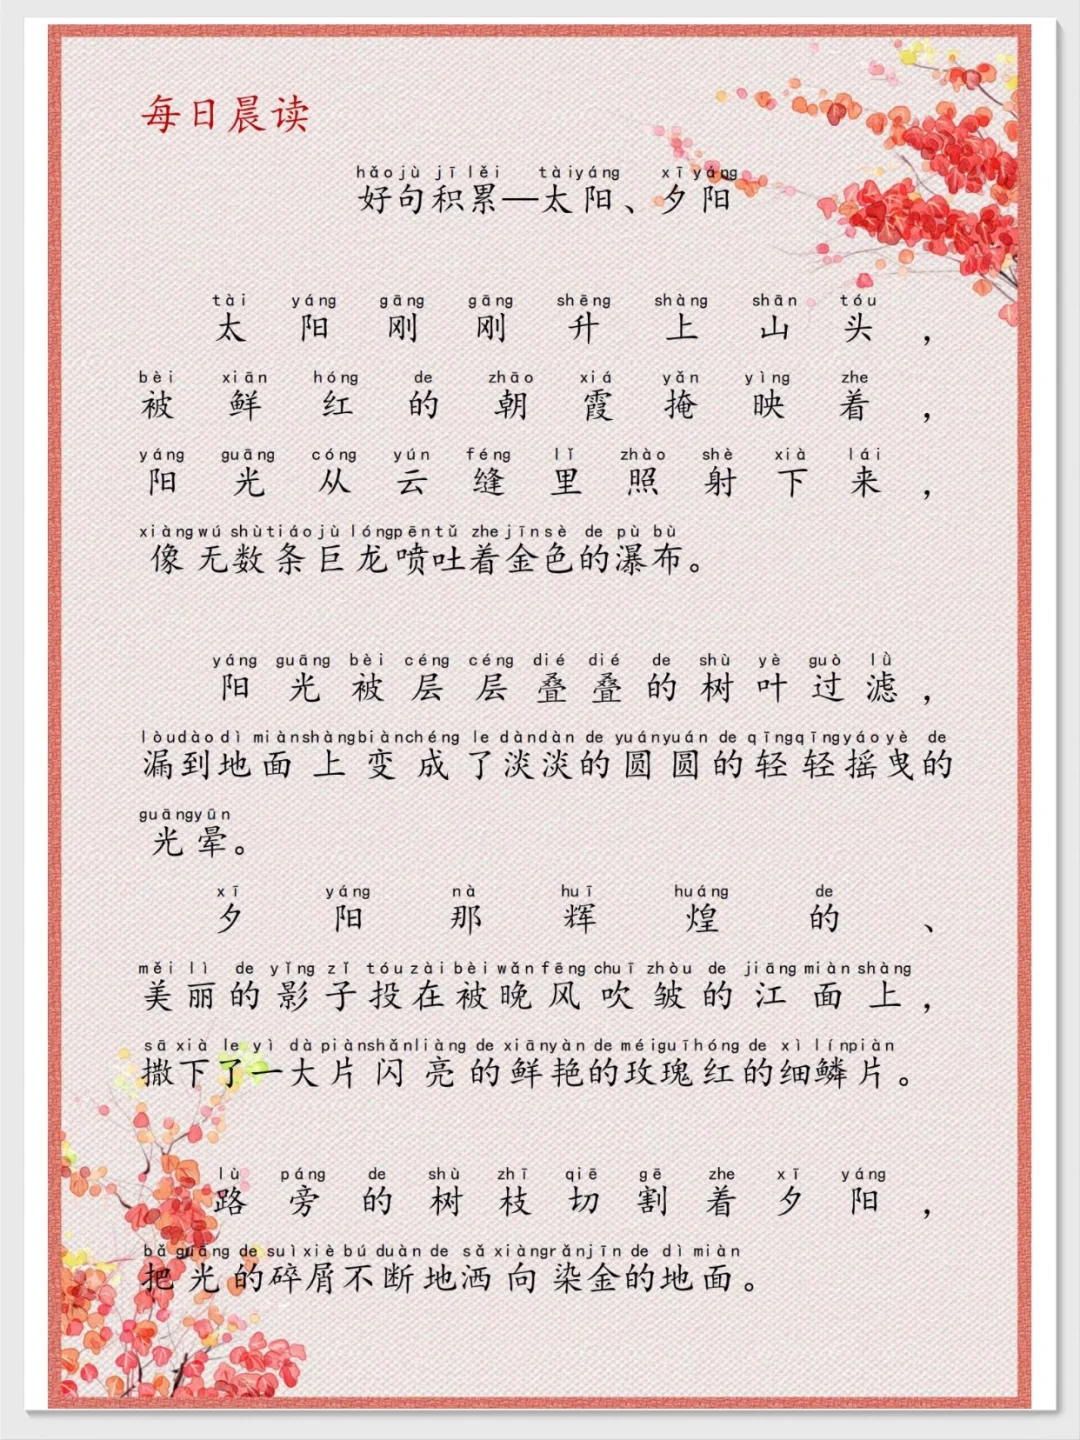 每日晨读
hǎojù jīlěi tàiyáng xīyáng
好句积累—太阳、夕阳
tài yáng gāng gāng shēng shàng shān tóu
太阳刚刚升上山头，
bèi xiān hóng de zhāo xiá yǎn yìng zhe
被鲜红的朝霞掩映着，
yáng guāng cóng yún féng lǐ zhào shè xià lái
阳光从云缝里照射下来，
xiàng wú shù tiáo jù lóng pēn tǔ zhe jīn sè de pù bù
像无数条巨龙喷吐着金色的瀑布。
yáng guāng bèi céng céng dié dié de shù yè guò lǜ
阳光被层层叠叠的树叶过滤，
lòu dào dì miàn shàng biàn chéng le dàn dàn de yuán yuán de qīng qīng yáo yè de
漏到地面上变成了淡淡的圆圆的轻轻摇曳的
guāng yūn
光晕。
xī yáng nà huī huáng de
夕阳那辉煌的、
měi lì de yǐng zǐ tóu zài bèi wǎn fēng chuī zhòu de jiāng miàn shàng
美丽的影子投在被晚风吹皱的江面上，
sā xià le yì dà piàn shǎn liàng de xiān yàn de méi guī hóng de xì lín piàn
撒下了一大片闪亮的鲜艳的玫瑰红的细鳞片。
lù páng de shù zhī qiē gē zhe xī yáng
路旁的树枝切割着夕阳，
bǎ guāng de suì xiè bú duàn de sǎ xiàng rǎn jīn de dì miàn
把光的碎屑不断地洒向染金的地面。